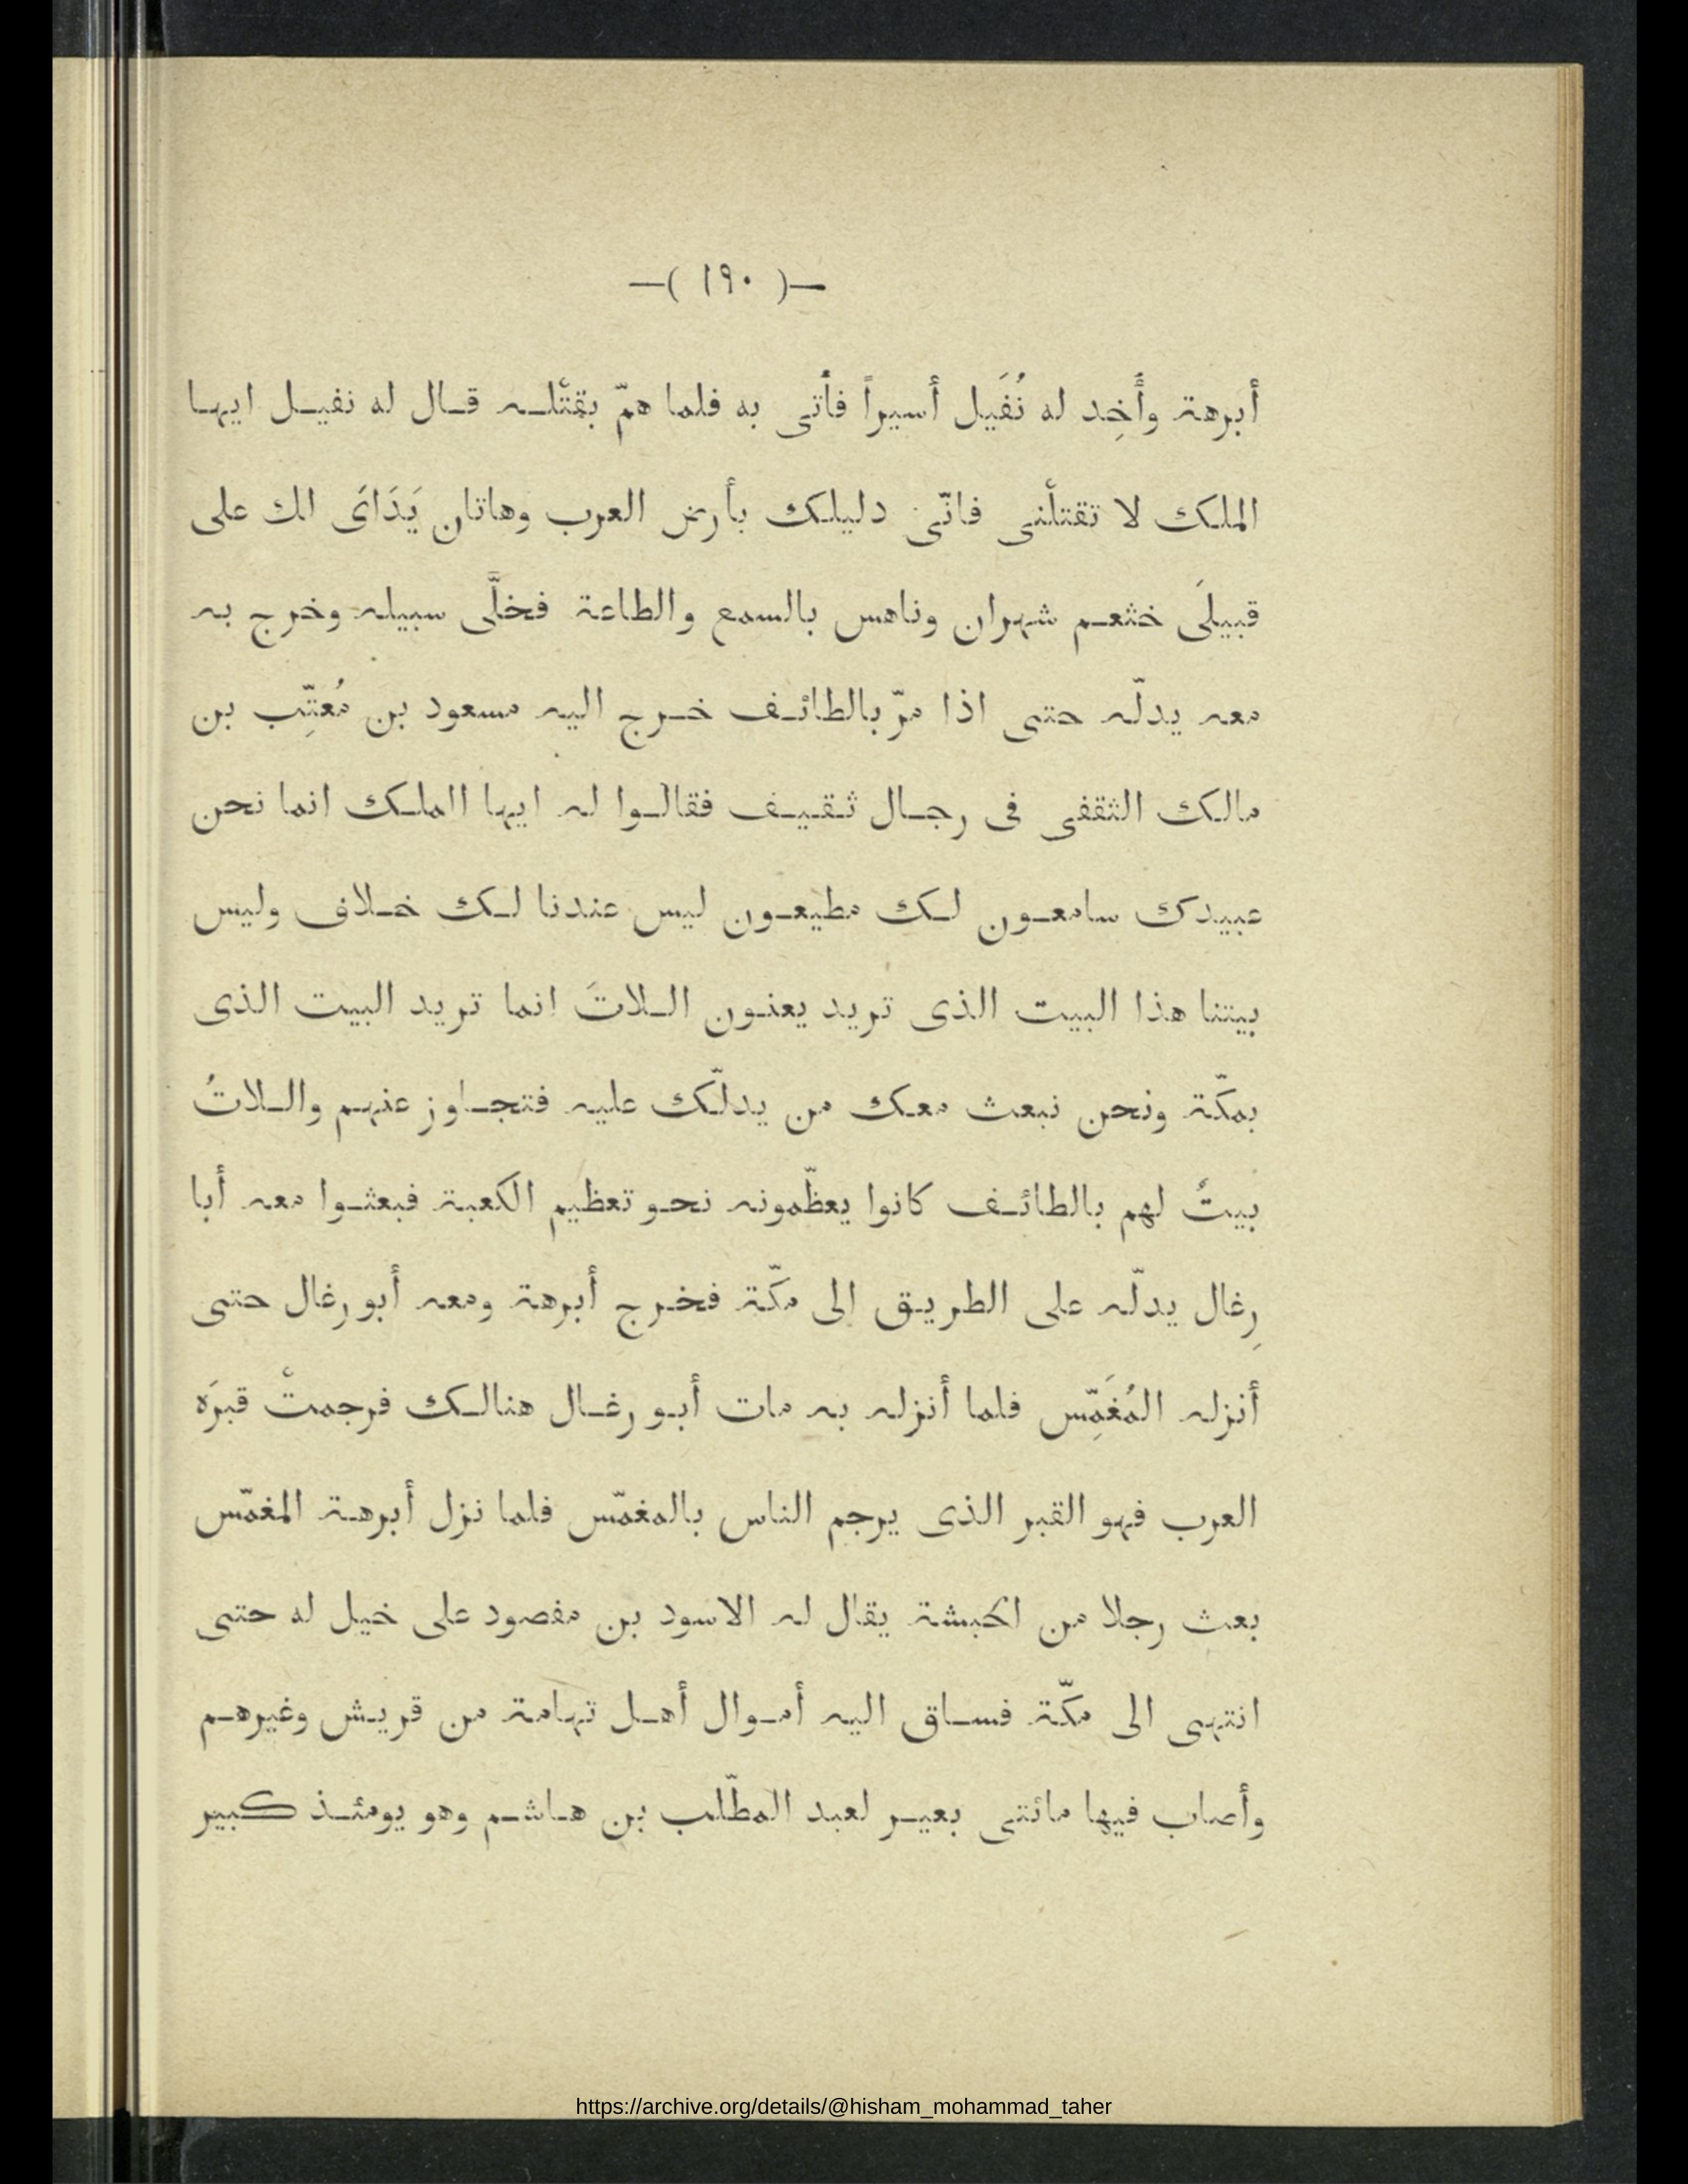 —( ١٩٠ )—
أبرهة وأُخِد له نُفَيل أسيراً فأتى به فلما همّ بقتْلـه قـال له نفيـل ايهـا
الملك لا تقتلْنى فانّى دليلك بأرض العرب وهاتان يَدَاىَ لك على
قبيلَى خثعـم شهران وناهس بالسمع والطاعة فخلَّى سبيله وخرج به
معه يدلّه حتى اذا مرّ بالطائـف خـرج اليه مسعود بن مُعتِّب بن
مالك الثقفى فى رجـال ثـقيـف فقالـوا له ايها االملـك انما نحن
عبيدك سامعـون لـك مطيعـون ليس عندنا لـك خـلاف وليس
بيتنا هذا البيت الذى تريد يعنـون الـلاتَ انما تريد البيت الذى
بمكّة ونحن نبعث معك من يدلّك عليه فتجـاوز عنهـم والـلاتُ
بيتٌ لهم بالطائـف كانوا يعظّمونه نحـو تعظيم الكعبة فبعثـوا معه أبا
رِغال يدلّه على الطريـق الى مكّة فخـرج أبرهة ومعه أبو رغال حتى
أنزله المُغَمِّس فلما أنزله به مات أبـو رغـال هنالـك فرجمتْ قبرَه
العرب فهو القبر الذى يرجم الناس بالمغمّس فلما نزل أبرهـة المغمّس
بعث رجلا من الحبشة يقال له الاسود بن مفصود على خيل له حتى
انتهى الى مكّة فسـاق اليه أمـوال أهـل تهامة من قريـش وغيرهـم
وأصاب فيها مائتى بعيـر لعبد المطّلب بن هـاشـم وهو يومئـذ كبير
https://archive.org/details/@hisham_mohammad_taher